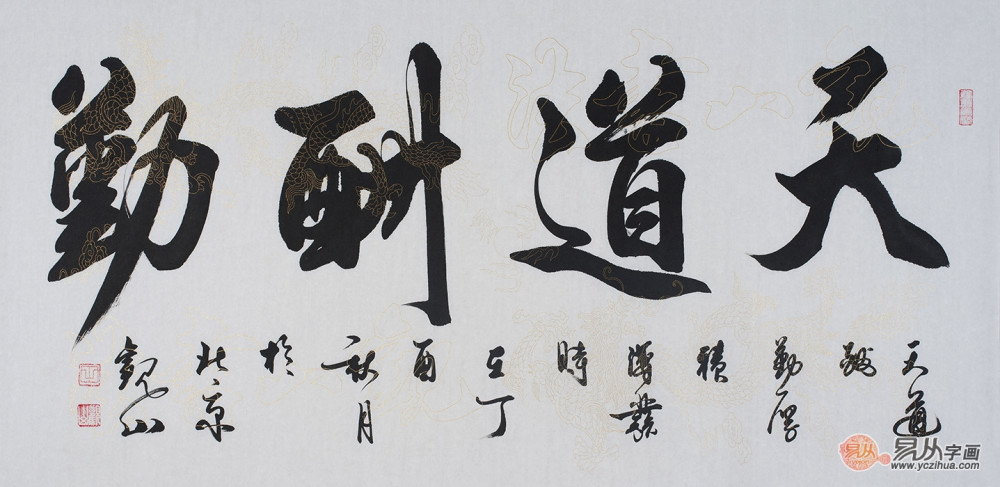 天道酬勤
天道
酬
勤厚
積
薄發
時
在丁
酉
秋月
於
北京
觀山
易从
易从字画
www.yczihua.com